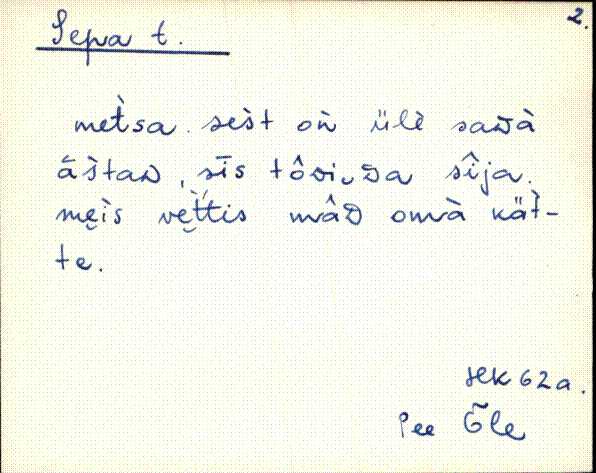 Sepa t.
2.
metsa. sèst oǹ ülè saᴅà
ástaᴅ, sīs tôᴅi‿ᴅa sîja.
mei̬s ve̬ttis mâᴅ omà kät̀-
te.
HEK 62a.
Pee Õle